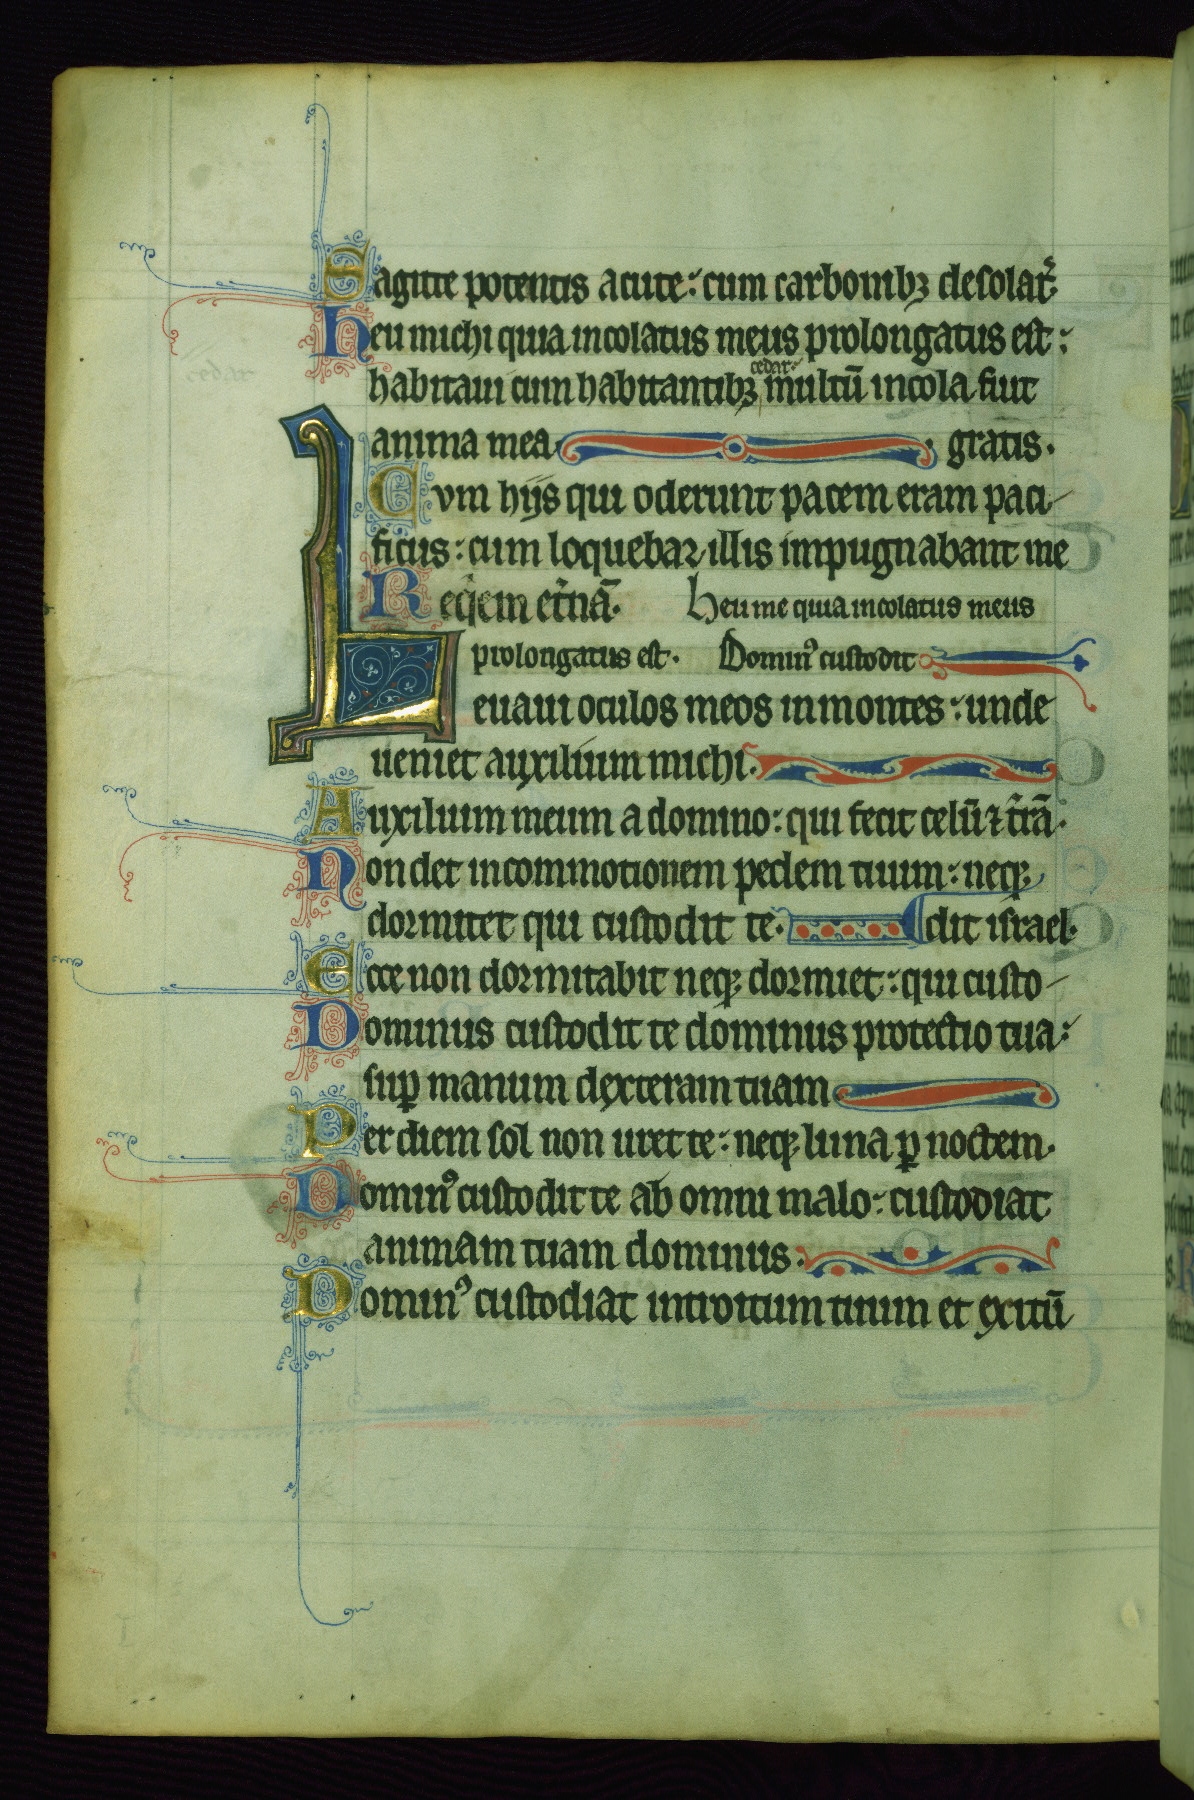 Sagitte potentis acute: cum carbonibꝫ desolatͥ
Heu michi quia incolatus meus prolongatus est:
cedar
habitaui cum habitantibꝫ multū incola fuit
anima mea. gratis.
Cvm hijs qui oderunt pacem eram paci
ficus: cum loquebar illis impugnabant me
Reqͥem et̾nā. Heu me quia incolatus meus
prolongatus est. Dominꝰ custodit
Leuaui oculos meos in montes: unde
ueniet auxilium michi.
Auxilium meum a domino: qui fecit celū ⁊ t̾rā.
Non det in commotionem pedem tuum: neqꝫ
dormitet qui custodit te. dit israel.
Ecce non dormitabit neqꝫ dormiet: qui custo
Dominus custodit te dominus protectio tua:
suꝑ manum dexteram tuam
Per diem sol non uret te: neqꝫ luna ꝑ noctem.
Dominꝰ custodit te ab omni malo: custodiat
animam tuam dominus.
Dominꝰ custodiat introitum tuum et exitū
cedar